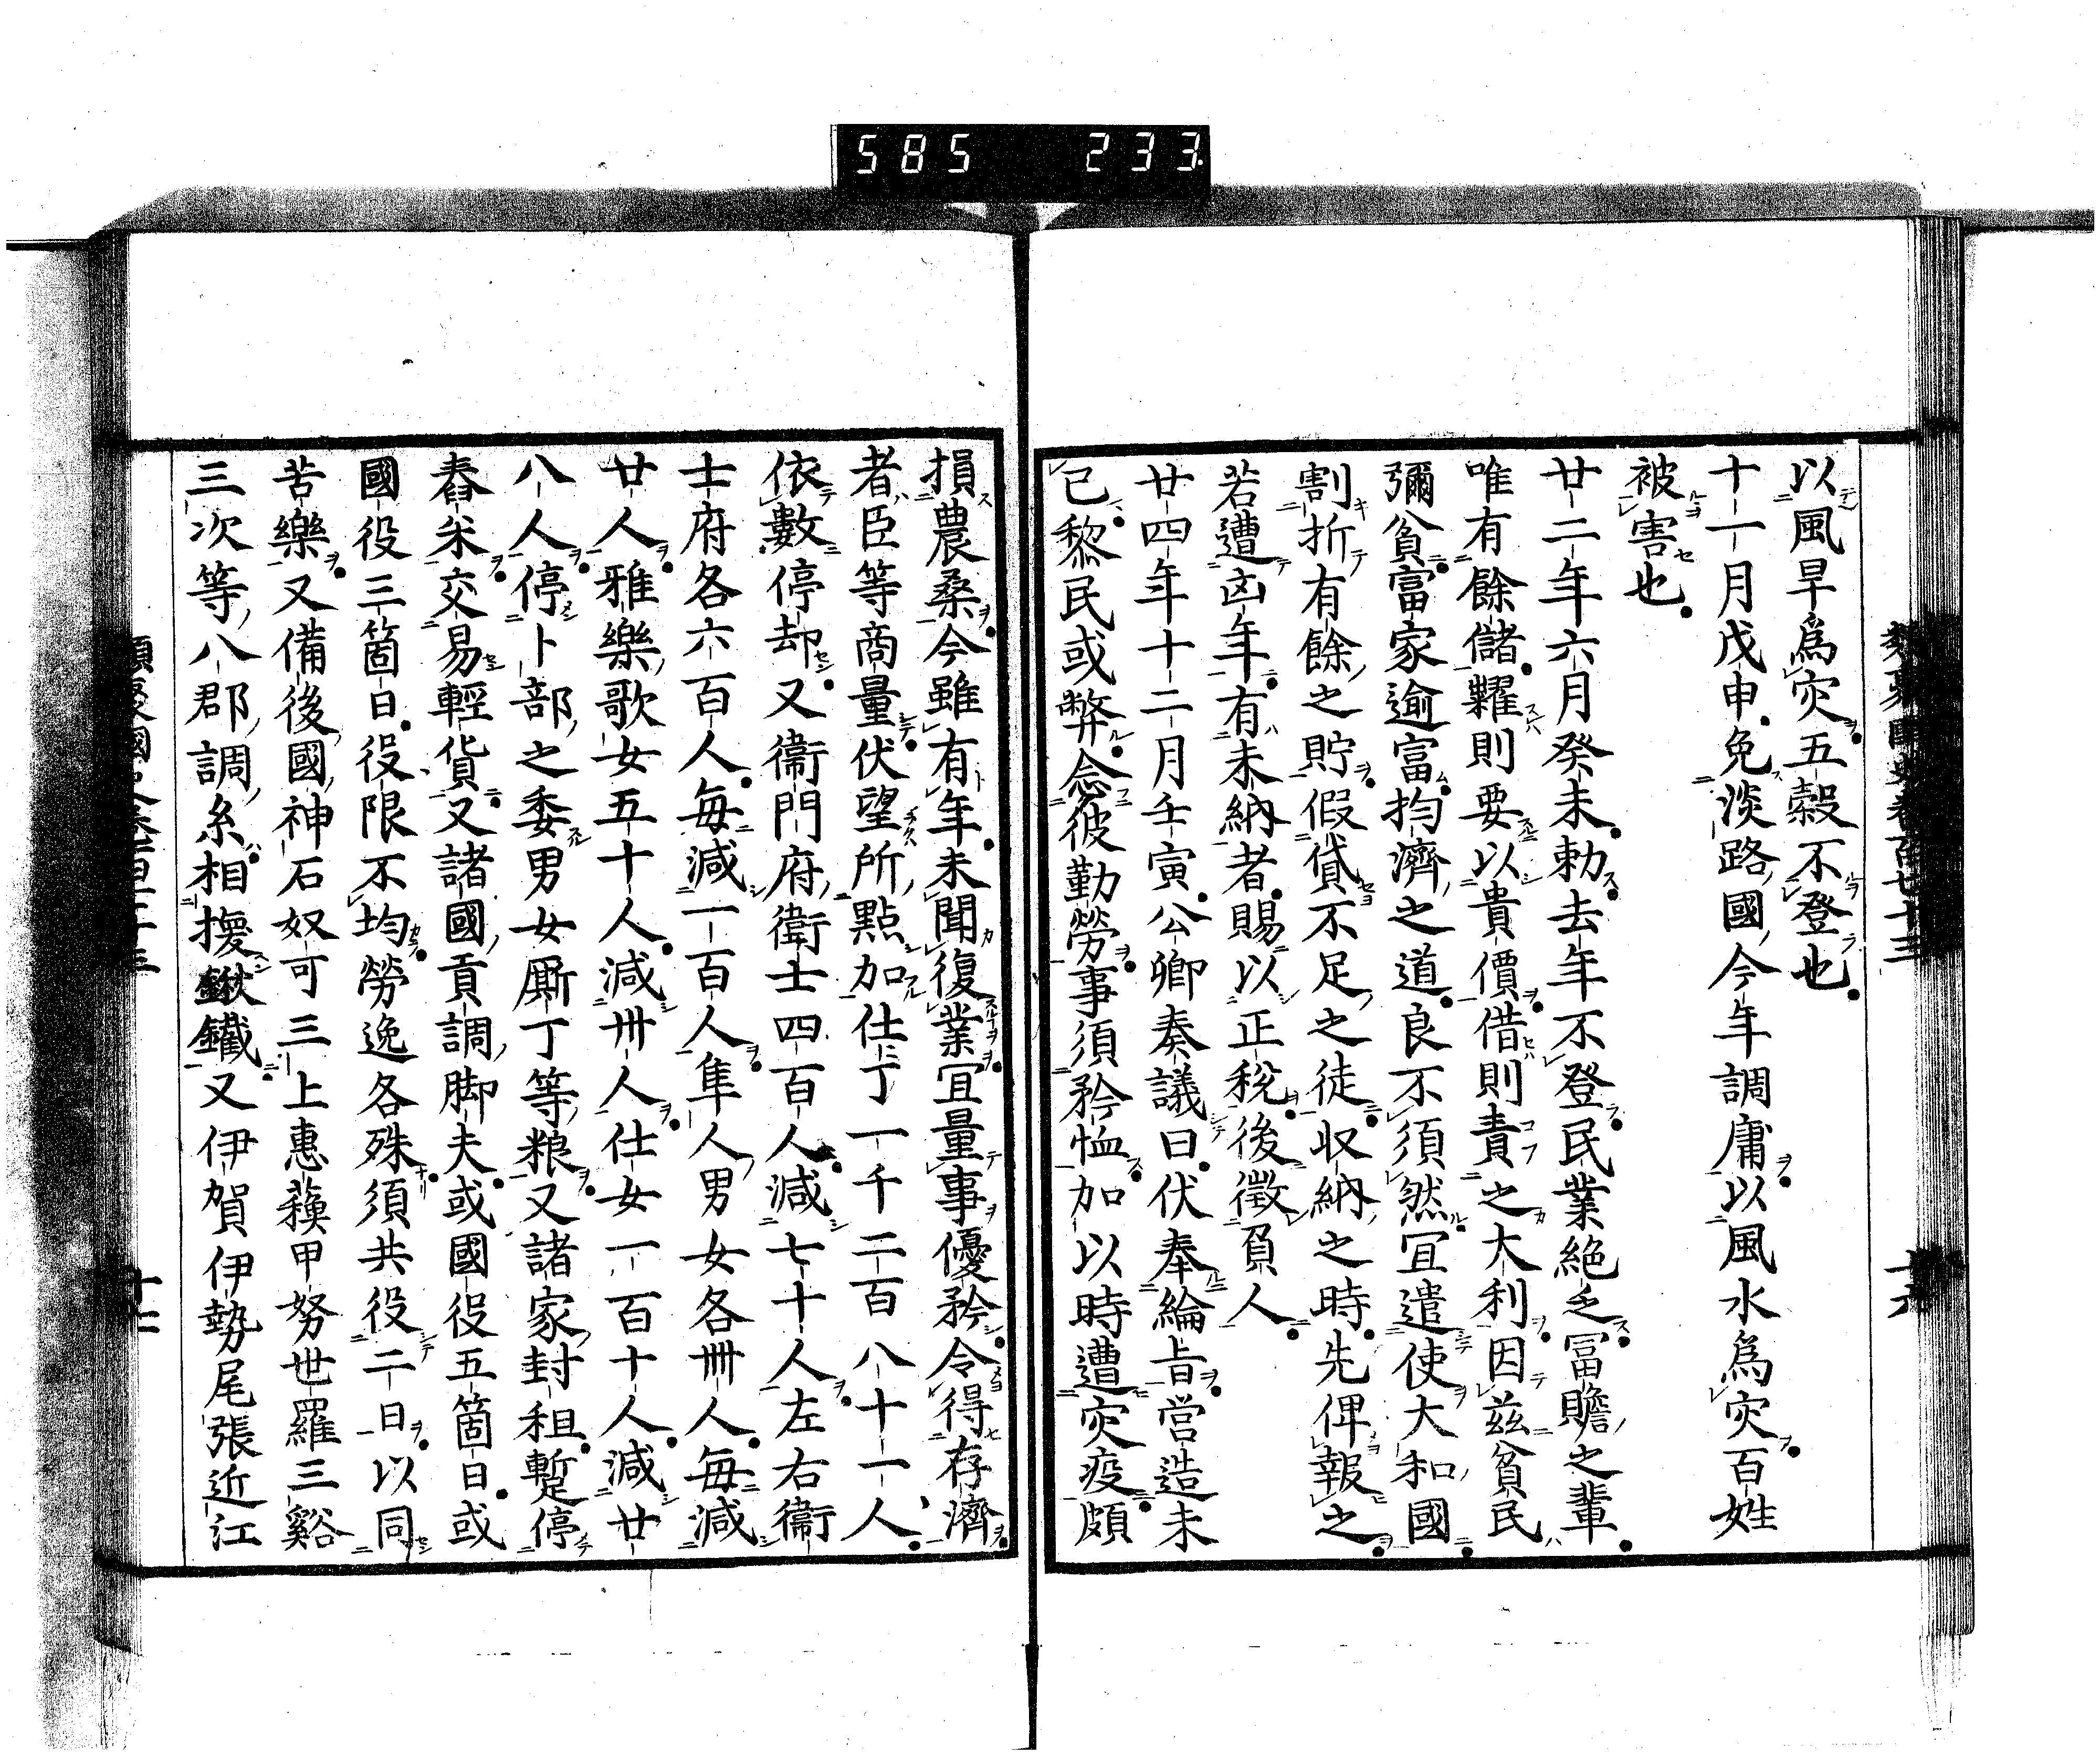 585 233
類聚國史卷百七十三 十六
以風旱爲灾五穀不登也
十一月戊申免淡路國今年調庸以風水爲灾百姓
被害也
廿二年六月癸未勅去年不登民業絶乏冨贍之輩
唯有餘儲糶則要以貴價借則責之大利因茲貧民
彌貧富家逾富均濟之道良不須然宜遣使大和國
割折有餘之貯假貸不足之徒収納之時先俾報之
若遭凶年有未納者賜以正税後徴負人
廿四年十二月壬寅公卿奏議曰伏奉綸旨營造未
已黎民或弊念彼勤勞事須矜恤加以時遭灾疫頗
損農桑今雖有年未聞復業宜量事優矜令得存濟
者臣等商量伏望所點加仕丁一千二百八十一人
依數停却又衞門府衛士四百人減七十人左右衞
士府各六百人毎減一百人隼人男女各卌人毎減
廿人雅樂歌女五十人減卅人仕女一百十人減廿
八人停卜部之委男女厮丁等粮又諸家封租蹔停
舂米交易輕貨又諸國貢調脚夫或國役五箇日或
國役三箇日役限不均勞逸各殊須共役二日以同
苦樂又備後國神石奴可三上惠蘓甲努世羅三谿
三次等八郡調糸相換鍬鐵又伊賀伊勢尾張近江
類聚國史卷百七十三 十七